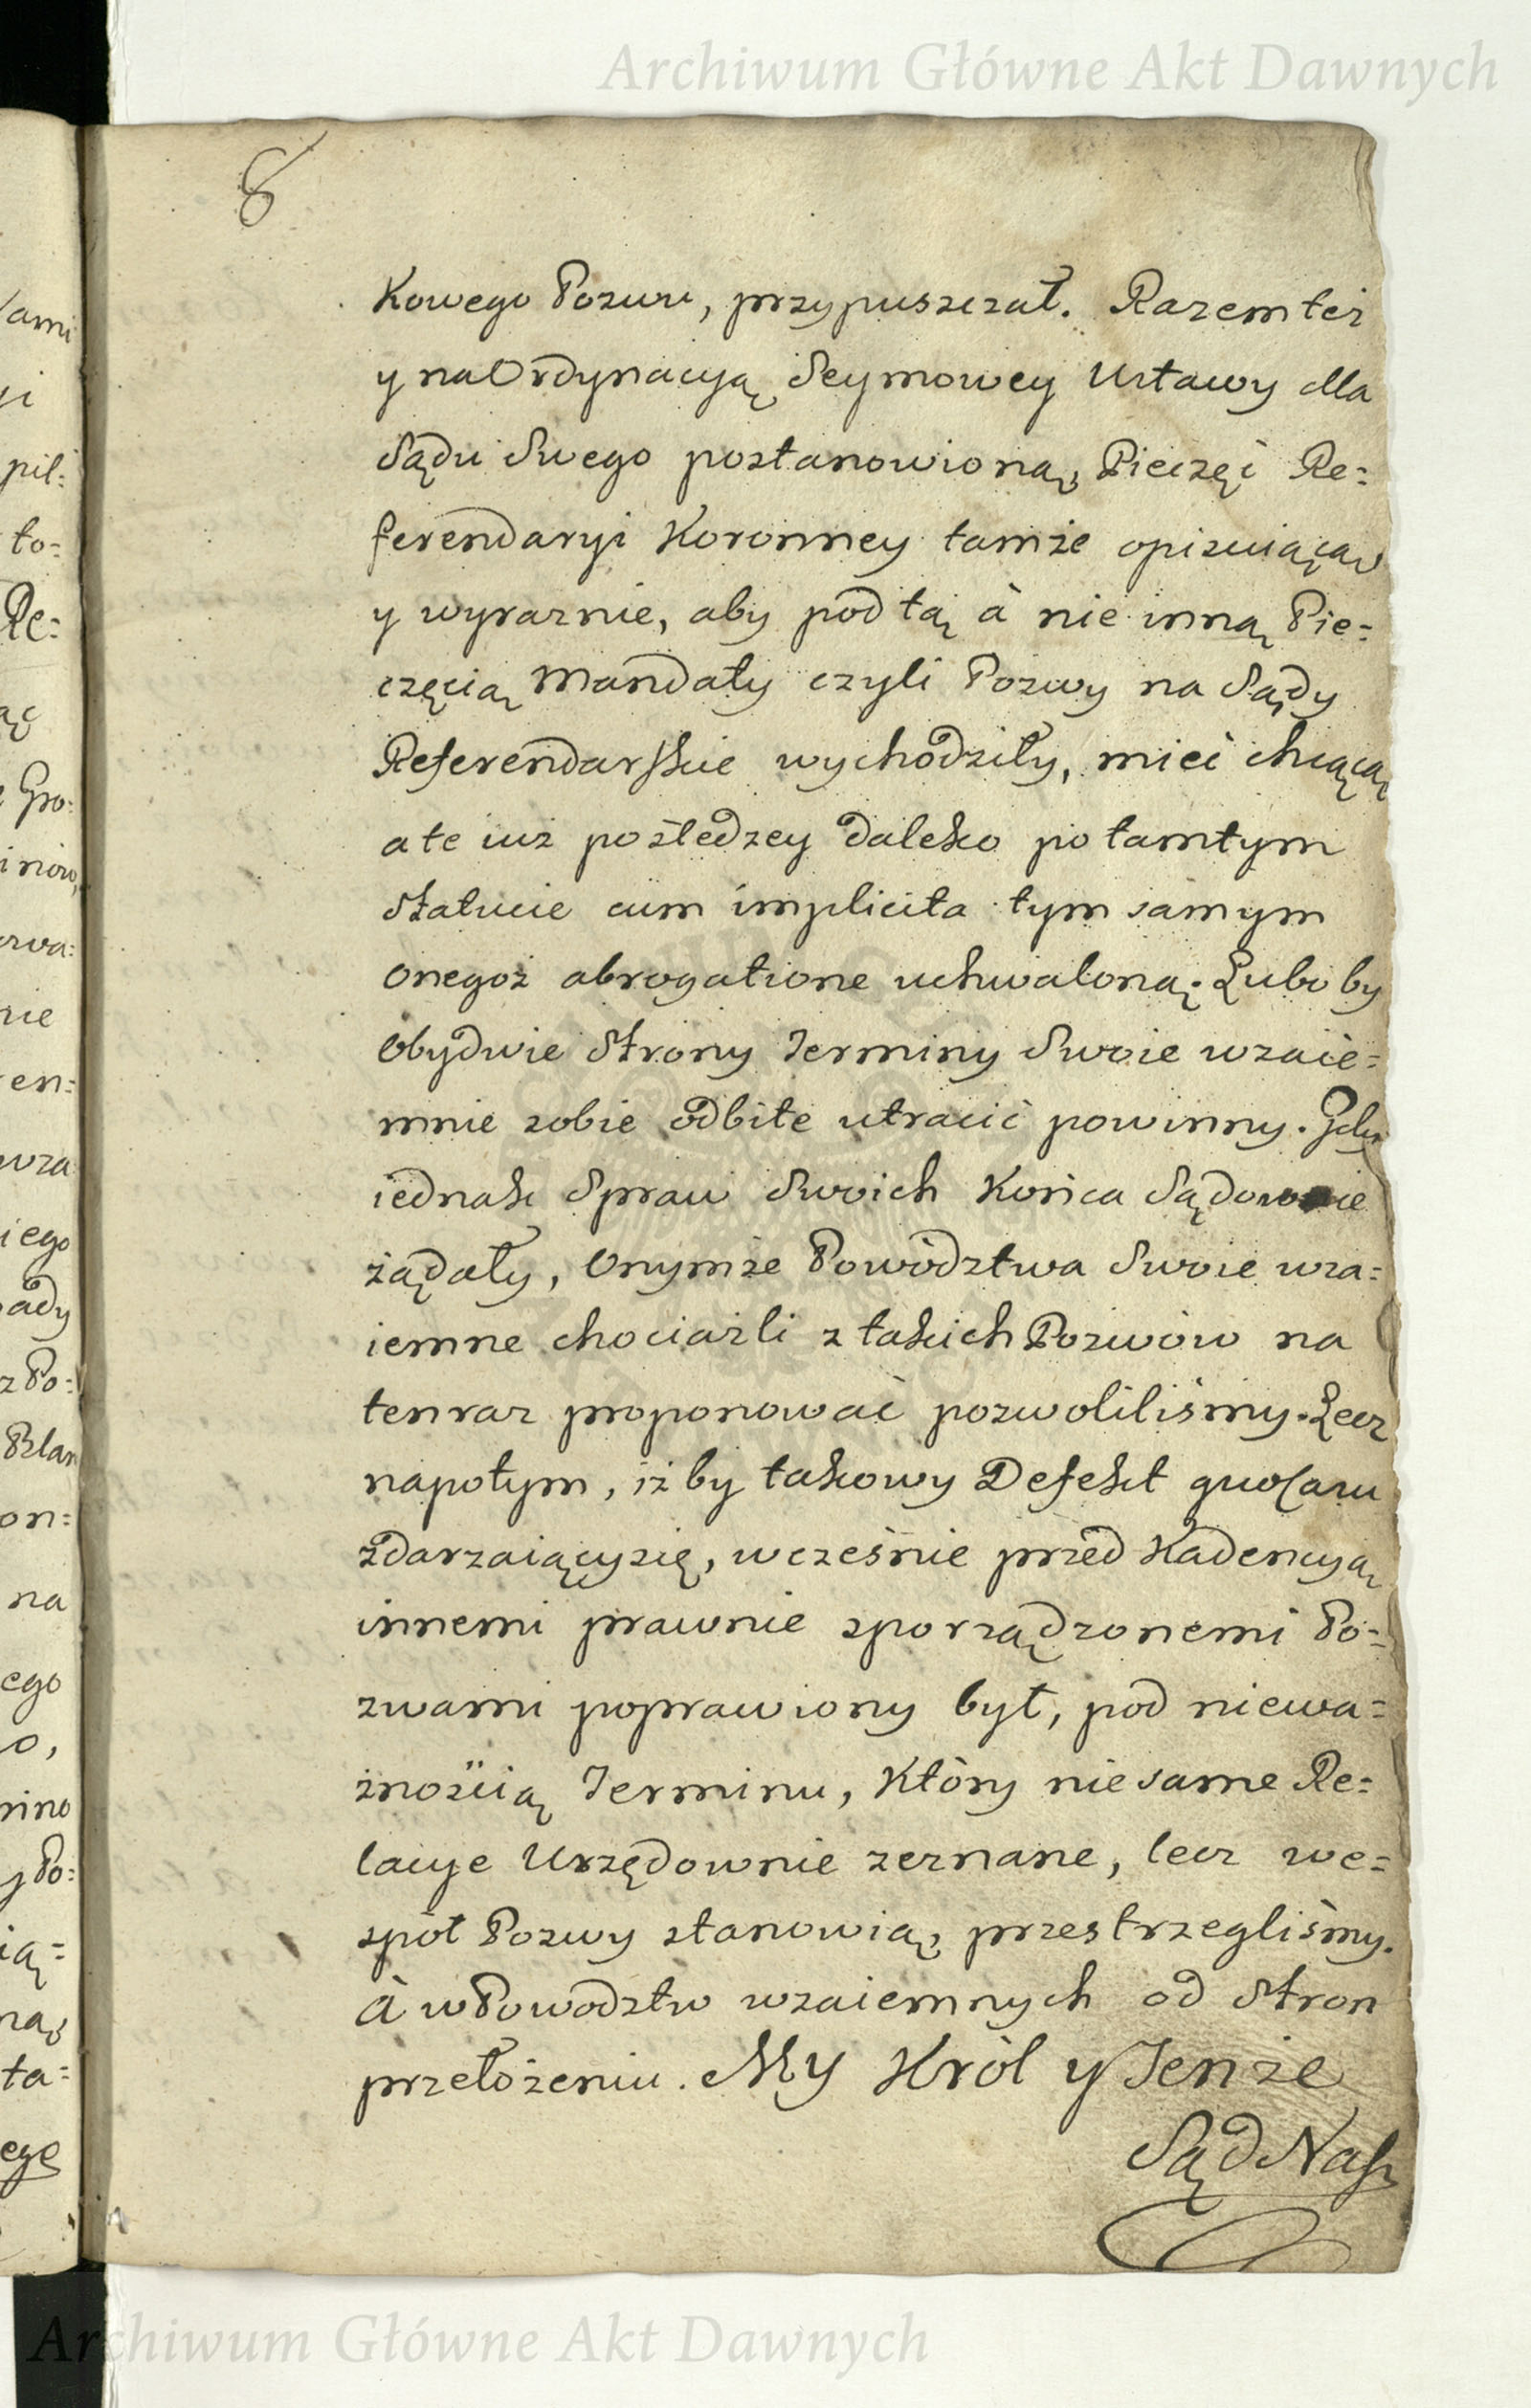 Archiwum Główne Akt Dawnych
8
kowego Pozwu, przypuszczał. Razem też
y na Ordynacyą Seymowey Ustawy dla
Sądu Swego postanowioną, Pieczęć Re=
ferendaryi Koronney tamże opisuiącą
y wyraznie, aby pod tą à nie inną Pie=
częcią Mandaty czyli Pozwy na Sądy
Referendarskie wychodziły, mieć chcącą
a te iuż pośledzey daleko po tamtym
Statucie cum implicita tym samym
onegoż abrogatione uchwaloną. Lubo by
Obydwie Strony Terminy Swoie wzaie=
mnie sobie odbite utracić powinny. Gdy
iednak Spraw Swoich Końca Sądownie
żądały, Onymże Powództwa Swoie wza=
iemne chociażli z takich Pozwów na
ten raz proponować pozwoliliśmy. Lecz
napotym, iż by takowy Defekt
zdarzaiący się, wcześnie przed Kadencyą
innemi prawnie sporządzonemi Po=
zwami poprawiony był, pod niewa=
żnością Terminu, Który nie same Re=
lacye Urzędownie zeznane, lecz we=
spół Pozwy stanowią, przestrzegliśmy.
A w Powództw wzaiemnych od Stron
przełożeniu. My Król y Tenże
Sąd Nasz
ami
pil:
to=
Re:
Gro:
en=
iego
z Po:
on=
na
ego
ta=
Archiwum Główne Akt Dawnych